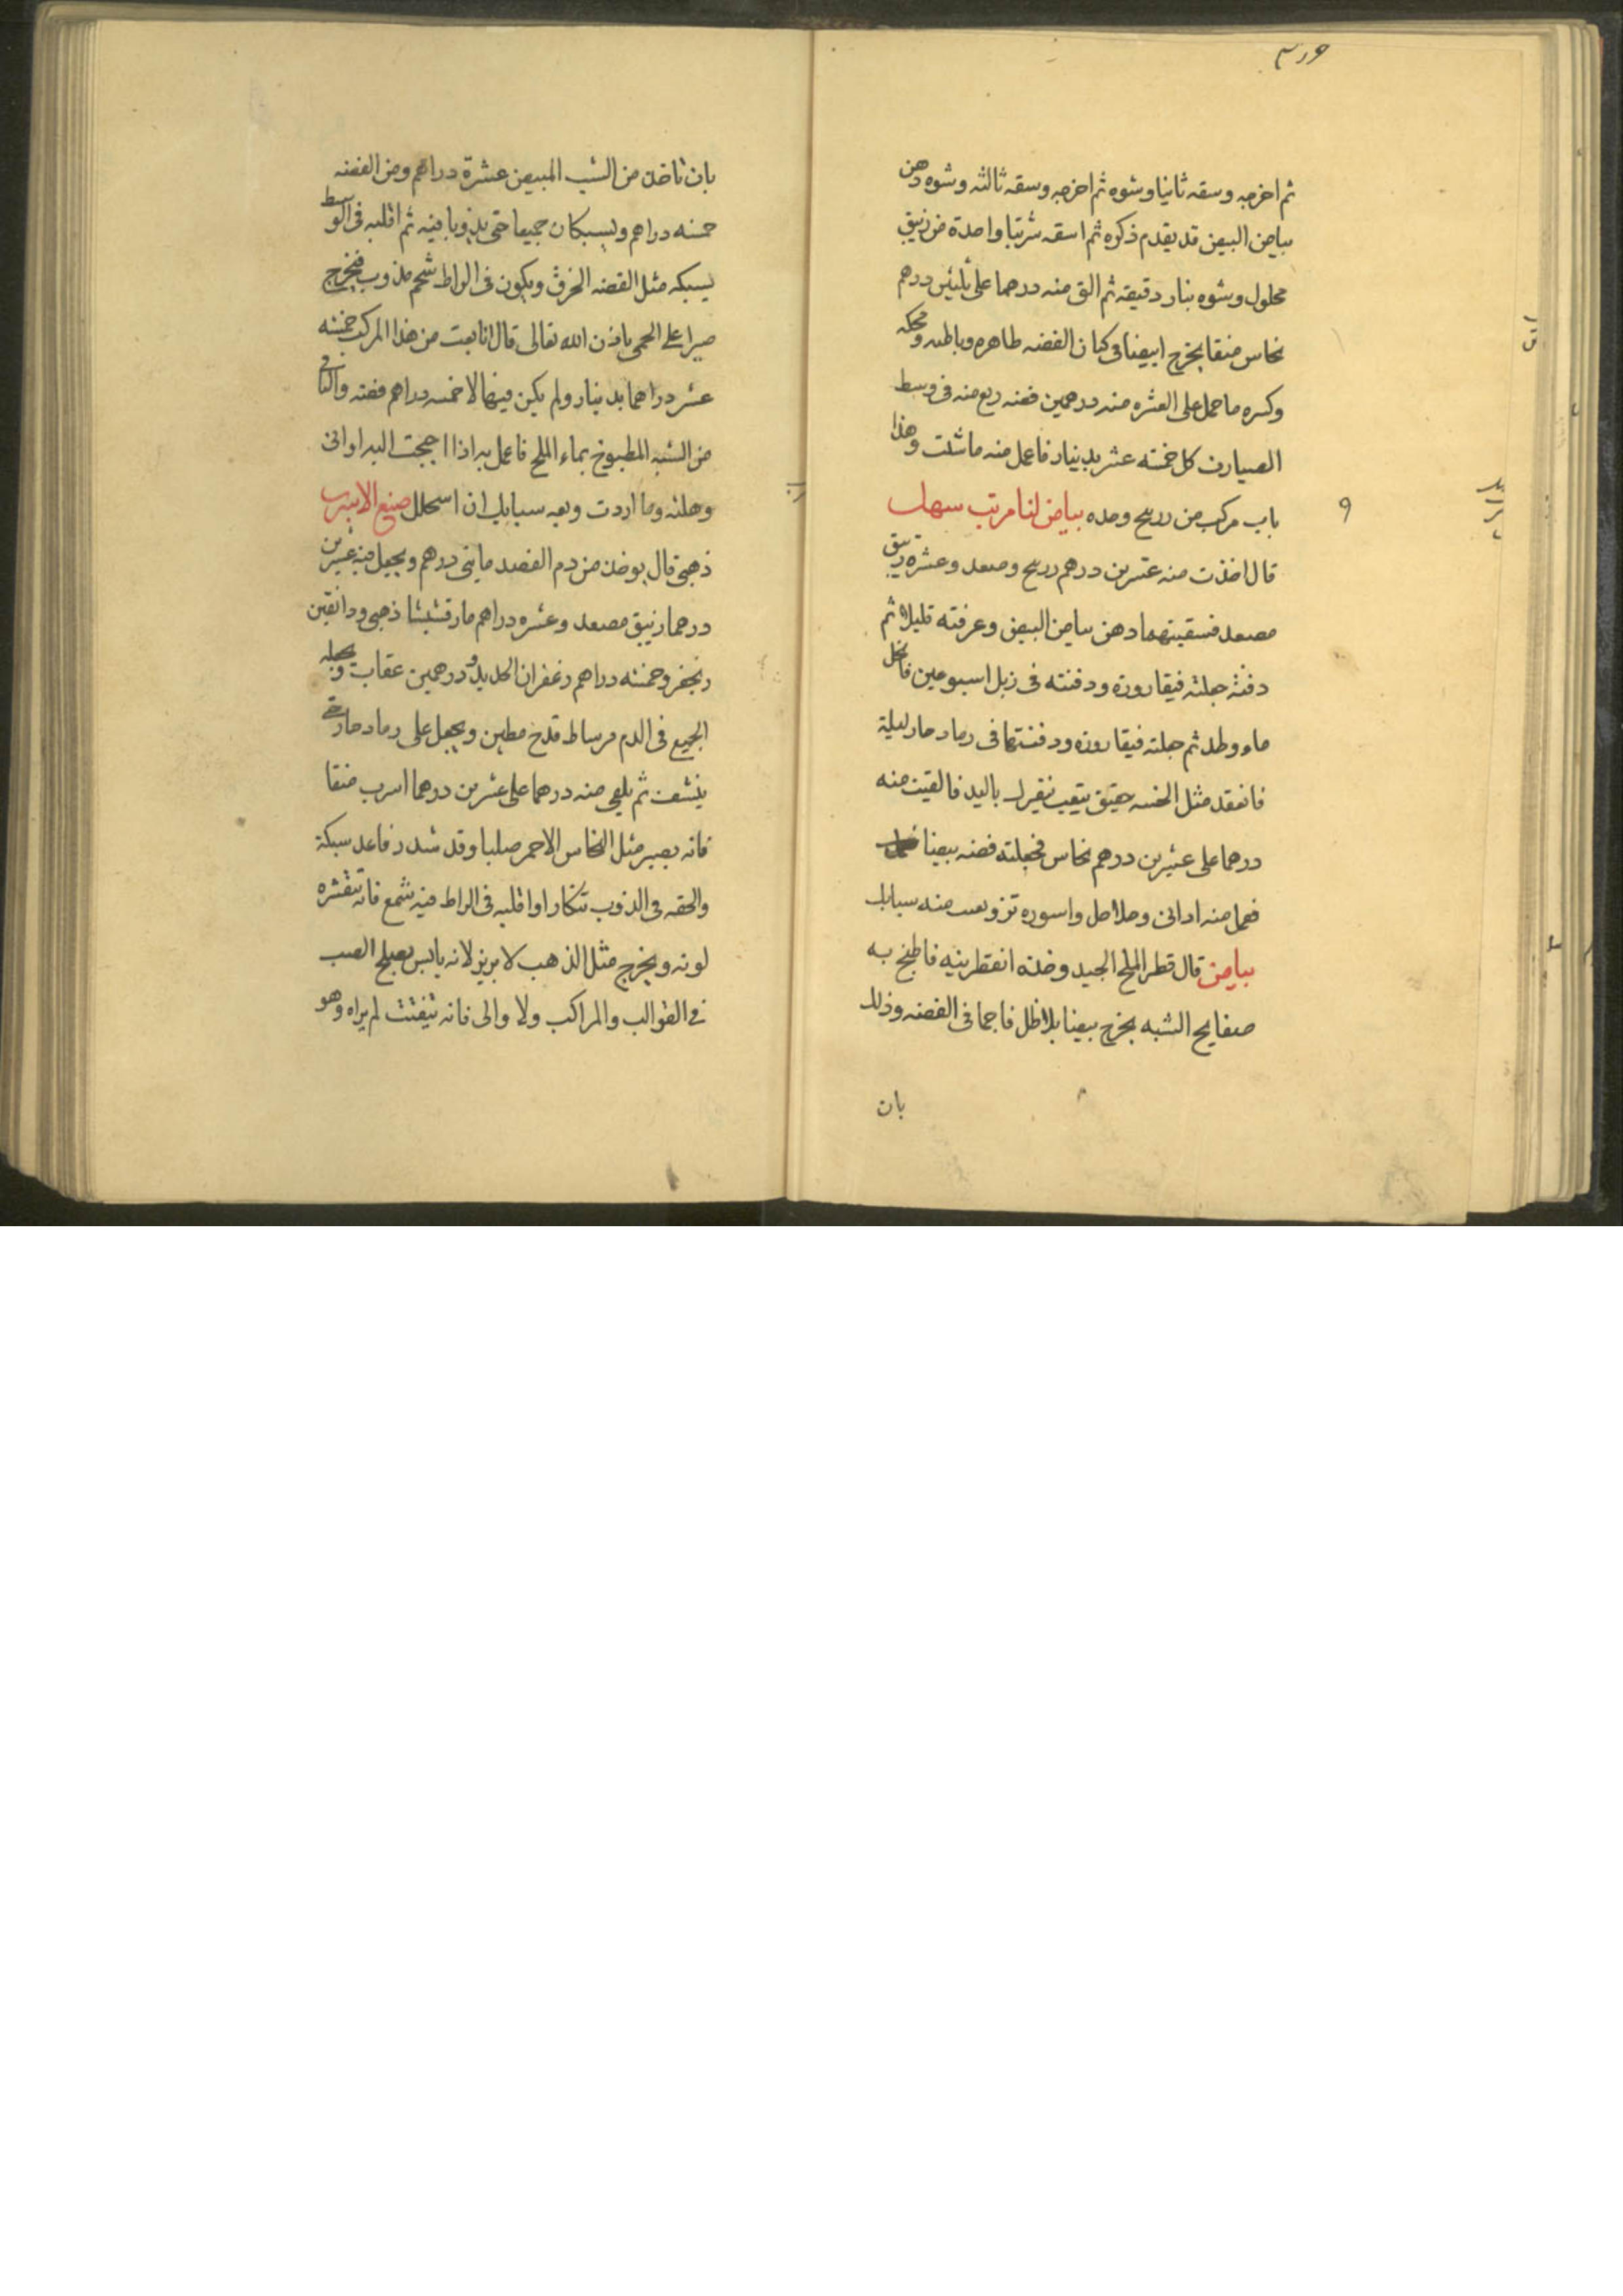 ثم اخرجه وسقه ثانيا وشوه ثم اخرجه وسقه ثالثه وشوه دهن
بياض البيض قد يقدم ذكره ثم اسقه شربتا واحدة من زيبق
محلول وشوه بنار دقيقه ثم الق منه درهما على ثلثين درهم
نحاس منقا يخرج ابيضا فى كيان الفضه طاهره وباطنه ومحكه
وكسره ما حمل على العشره منه درهمين فضه ربع منه فى وسط
الصيارف كل خمسه عشر بدينار فاعمل منه ما شئت وهذا
باب مركب من زرنيخ وحده بياض لنا مرتب سهل
قال اخذت منه عشرين درهم زرنيخ ومصعد وعشره زيبق
مصعد فسقيتهما دهن بياض البيض وعرفته قليلا ثم
دفنته جعلته فيقاروره ودفنته فى زبل اسبوعين فانحل
ماء وطلد ثم جعلته فيقاروره ودفنتها فى رماد حار ليلة
فانعقد مثل الخسه باليد فالقيت منه
درهما على عشرين درهم نحاس فجعلته فضه بيضا
فعمل منه اوانى وخلاخل واسوره منه سبايك
بياض قال قطر الملح الجيد وخذه انقطر بنيه فاطبخ به
صفايح الشبه يخرج بيضا بلا ظل فاجما فى الفضه وذلك
بان
بان تاخذ من الشب المبيض عشرة دراهم ومن الفضه
خمسه دراهم ويسبكان جميعا حتى يذوبا فيه ثم اقلبه فى الوسط
يسبكه مثل الفضه الخرق ويكون فى الراط شحم مذوب فيخرج
صبرا على الحمى باذن الله تعالى قال انا بعت من هذا المركب خمسه
عشر دراهما بدينار ولم يكن فيها الا خمسه دراهم فضه والباقى
من الشبه المطبوخ بماء الملح فاعمل به اذا احججت اليه اوانى
وهلثه وما اردت وبعه سبايك ان اسحلل صنع الاسرب
ذهبى قال يوخذ من دم الفصد مايتى درهم ويجعل فيه عشرين
درهما زيبق مصعد وعشره دراهم مارقشيثا ذهبى ودانقين
زنجفر وخمسه دراهم زعفران الحديد ودرهمين عقاب ويجعله
الجميع فى الدم مرساط قدح مطين ويجعل على رماد حار حتى
ينشف ثم يلقى منه درهما على عشرين درهما اسرب منقا
فانه يصير مثل النحاس الاحمر صلبا وقد شدد فاعد سبكة
والحقه فى الذوب تنكار او اقلبه فى الراط فيه شمع فانه تتقشره
لونه ويخرج مثل الذهب لابريز لانه يابس يصلح الصب
فى القوالب والمراكب ولا والى فانه تتفتت لم يراه وهو